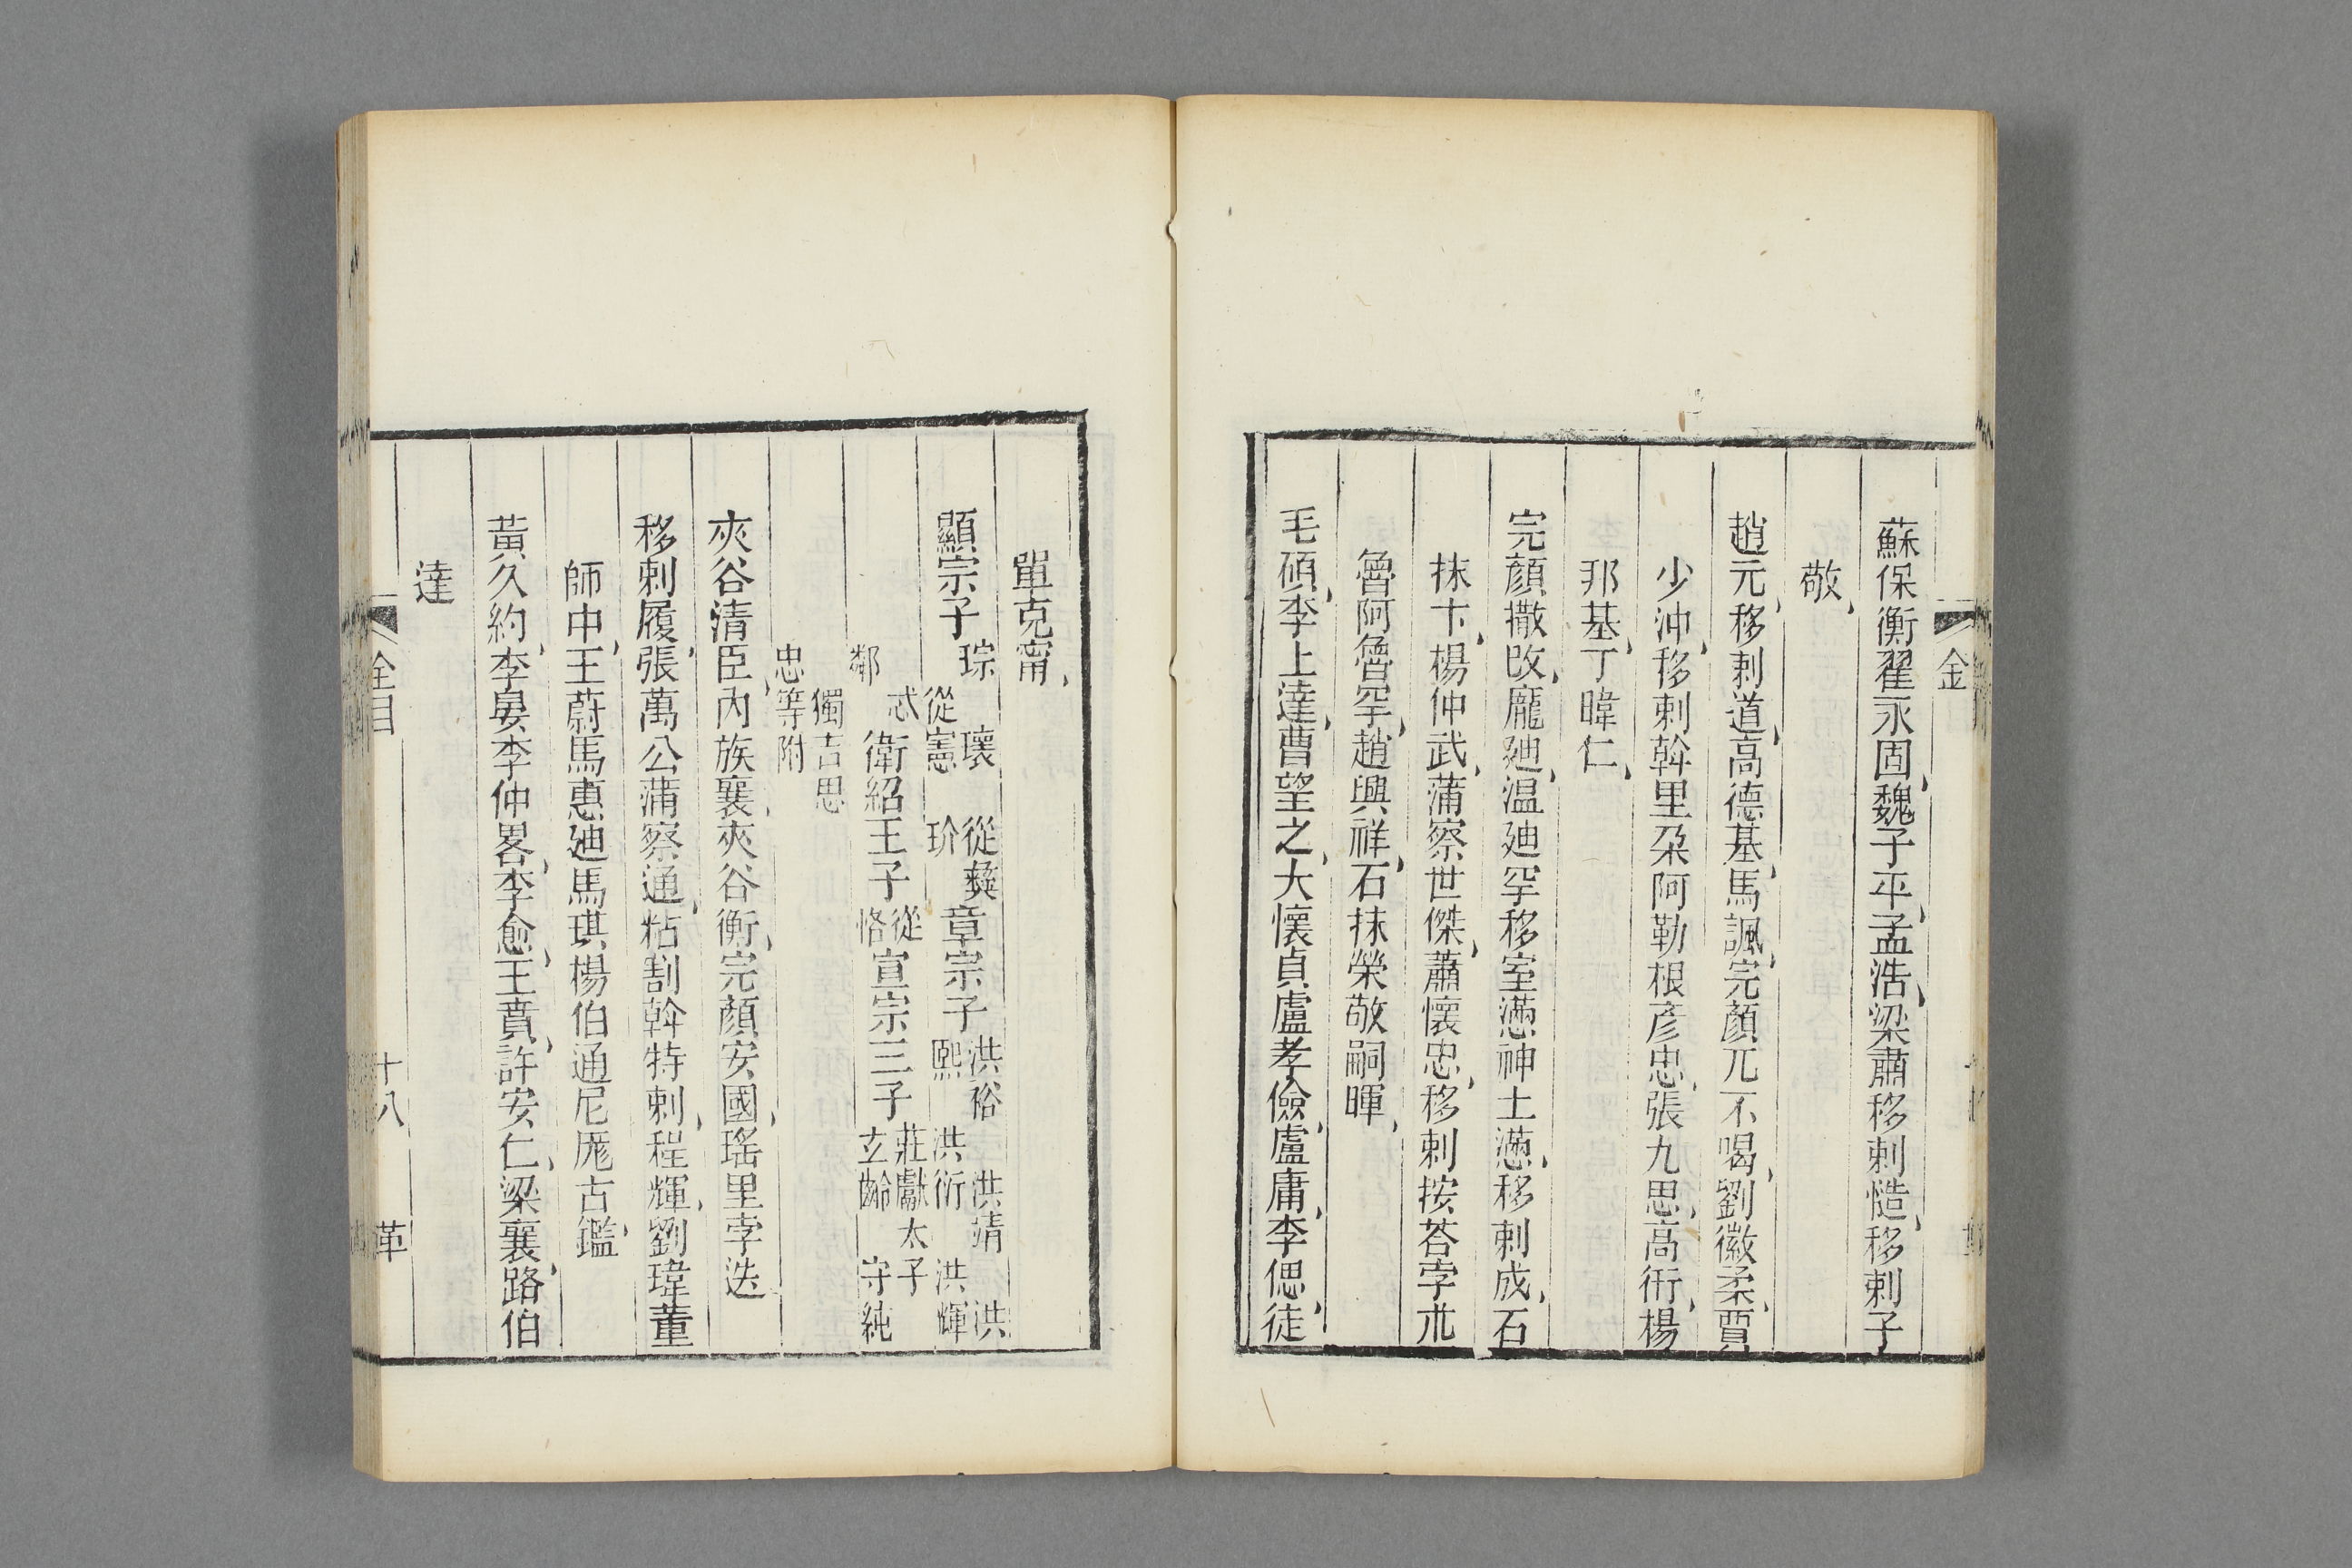 金
蘇保衡翟永固魏子平孟浩梁肅移剌慥移剌子
敬
趙元移剌道高德基馬諷完顏兀不喝劉徽柔賈
少沖移剌斡里朶阿勒根彥忠張九思高衎楊
邦基丁暐仁
完顏撒改龐廸溫廸罕移室懣神土懣移剌成石
抹卞楊仲武蒲察世傑蕭懷忠移剌按荅孛朮
魯阿魯罕趙興祥石抹榮敬嗣暉
毛碩李上達曹望之大懷貞盧孝儉盧庸李偲徒
單克甯
顯宗子琮 瓌 從彝
從憲 玠
章宗子洪裕 洪靖 洪
熙 洪衍 洪輝
忒
鄰
衛紹王子從
恪
宣宗三子莊獻太子
玄齡 守純
獨吉思
忠等附
夾谷清臣內族襄夾谷衡完顏安國瑤里孛迭
移剌履張萬公蒲察通粘割斡特剌程輝劉瑋董
師中王蔚馬惠廸馬琪楊伯通尼厖古鑑
黃久約李晏李仲畧李愈王賁許安仁梁襄路伯
達
全目
十八
革